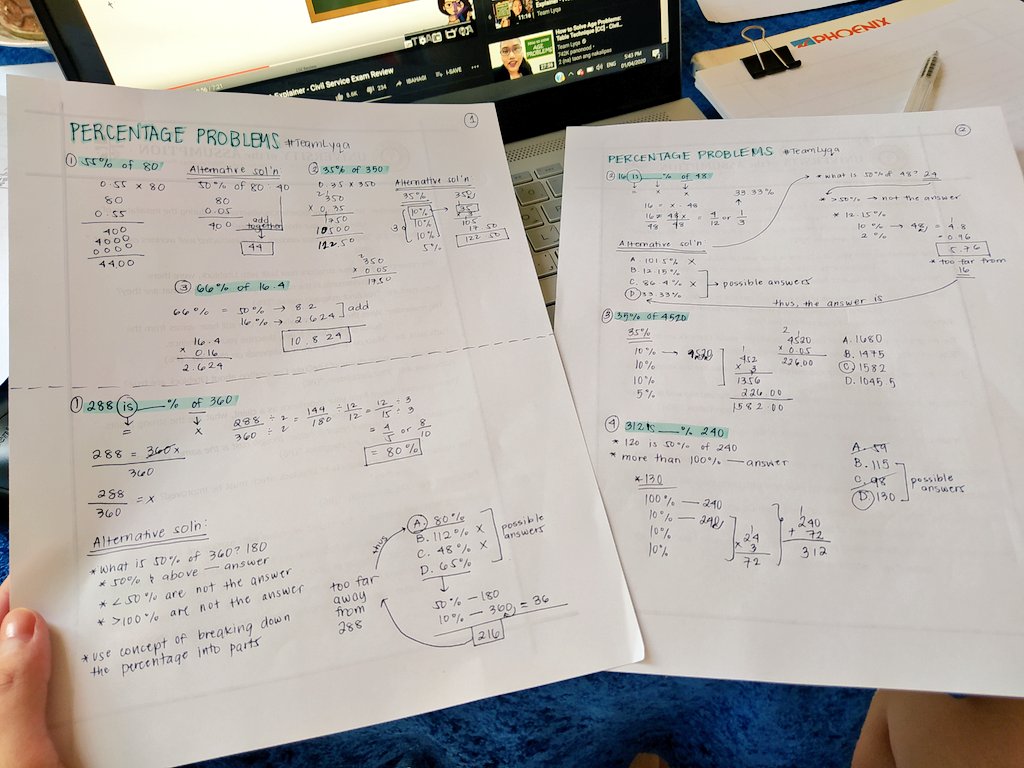 Explainer - Civil Service Exam Review
8.6K
234
IBAHAGI
I-SAVE
11:16
Team Lyqa
How to Solve Age Problems:
Table Technique [CC] - Civil...
Team Lyqa
742K panonood
2 (na) taon ang nakalipas
AGE
PROBLEMS
27:59
ENG
5:43 PM
01/04/2020
PHOENIX
1
PERCENTAGE PROBLEMS #TeamLyqa
1 55% of 80
0.55 x 80
80
0.55
400
4000
0000
4400
Alternative sol'n:
50% of 80 : 40
80
0.05
400
add
together
44
2 35% of 350
0.35 x 350
350
x 0.35
1750
10500
122.50
Alternative sol'n:
35%
3
10%
10%
10%
5%
350
35
x 3
105
17.50
122.50
350
x 0.05
1750
3 66% of 16.4
66% = 50% → 8.2
16% → 2.624
add
10.824
16.4
x 0.16
2.624
1 288 is ___% of 360
= x
288 = 360x
360
288 = x
360
288 ÷ 2 = 144 ÷ 12 = 12 ÷ 3
360 ÷ 2 180 12 15 ÷ 3
= 4 or 8
5 10
= 80%
Alternative soln:
* what is 50% of 360? 180
* 50% & above — answer
* < 50% are not the answer
* >100% are not the answer
* use concept of breaking down
the percentage into parts
thus
A. 80%
B. 112% x
C. 48% x
D. 65%
possible
answers
50% - 180
10% - 360 = 36
216
too far
away
from
288
2
PERCENTAGE PROBLEMS #TeamLyqa
2 16 is ___% of 48
= x x
16 = x · 48
16 = 48x = 4 or 1
48 48 12 3
33.33%
Alternative sol'n:
A 101.5% x
B. 12.15%
C. 86.4% x
D 33.33%
possible answers
* what is 50% of 48? 24
* >50% → not the answer
* 12.15%
10% → 48 = 4.8
2% = 0.96
5.76
* too far from
16
thus, the answer is
3 35% of 4520
35%
10% → 4520
10%
10%
5%
452
x 3
1356
226.00
1582.00
4520
x 0.05
226.00
A. 1680
B. 1475
C 1582
D. 1045.5
4 312 is ___% 240
* 120 is 50% of 240
* more than 100% — answer
* 130
100% — 240
10% — 240
10%
10%
24
x 3
72
240
+ 72
312
A. 59
B. 115
C. 98
D 130
possible
answers